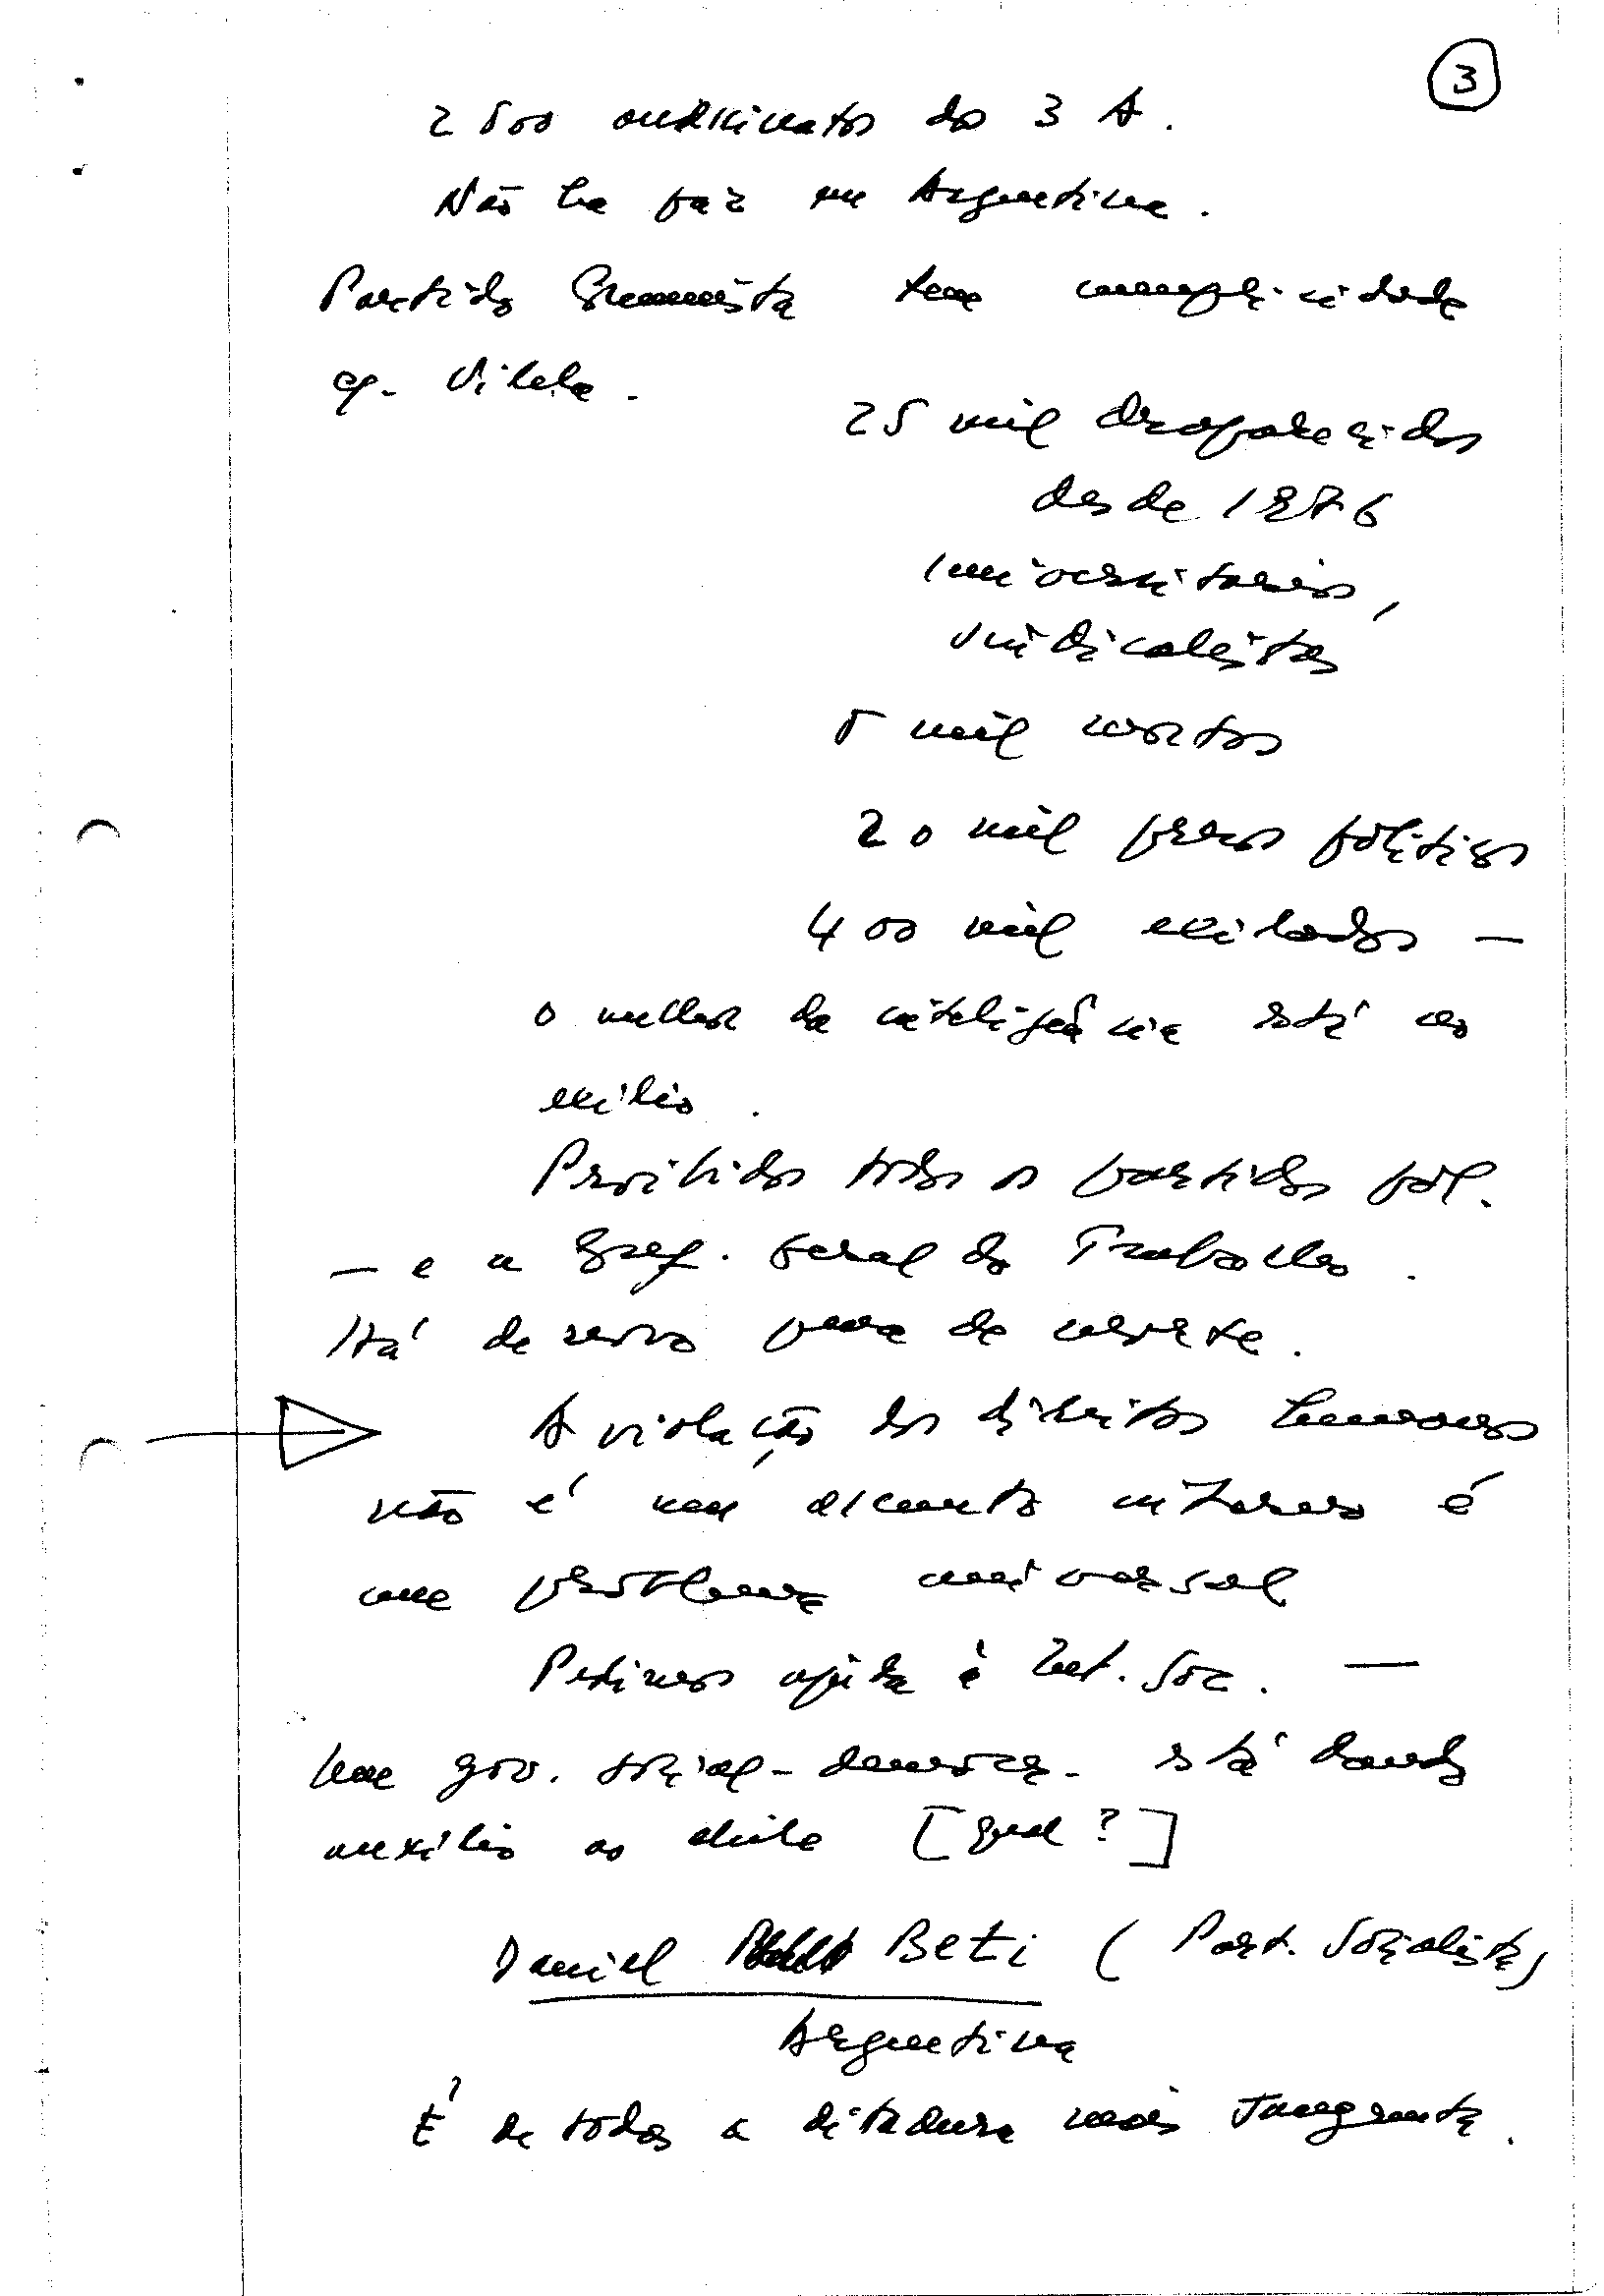 3
2500 assassinatos da 3 A.
Não ha paz na Argentina.
Partido Comunista tem cumplicidade
c/ Videla.
25 mil desaparecidos
desde 1976
universitarios,
sindicalistas
5 mil mortos
20 mil presos políticos
400 mil exilados —
o melhor da inteligência está no
exílio.
Proibidos todos os partidos pol.
— e a Geral do Trabalho.
Há de novo pena de morte.
A violação dos direitos humanos
não é um assunto interno é
um problema universal
Pedimos ajuda à Int. Soc. —
Um gov. social-democr. está dando
auxílio ao Chile [qual?]
Daniel Beti (Part. Socialista)
Argentina
É de todas a ditadura mais sangrenta.